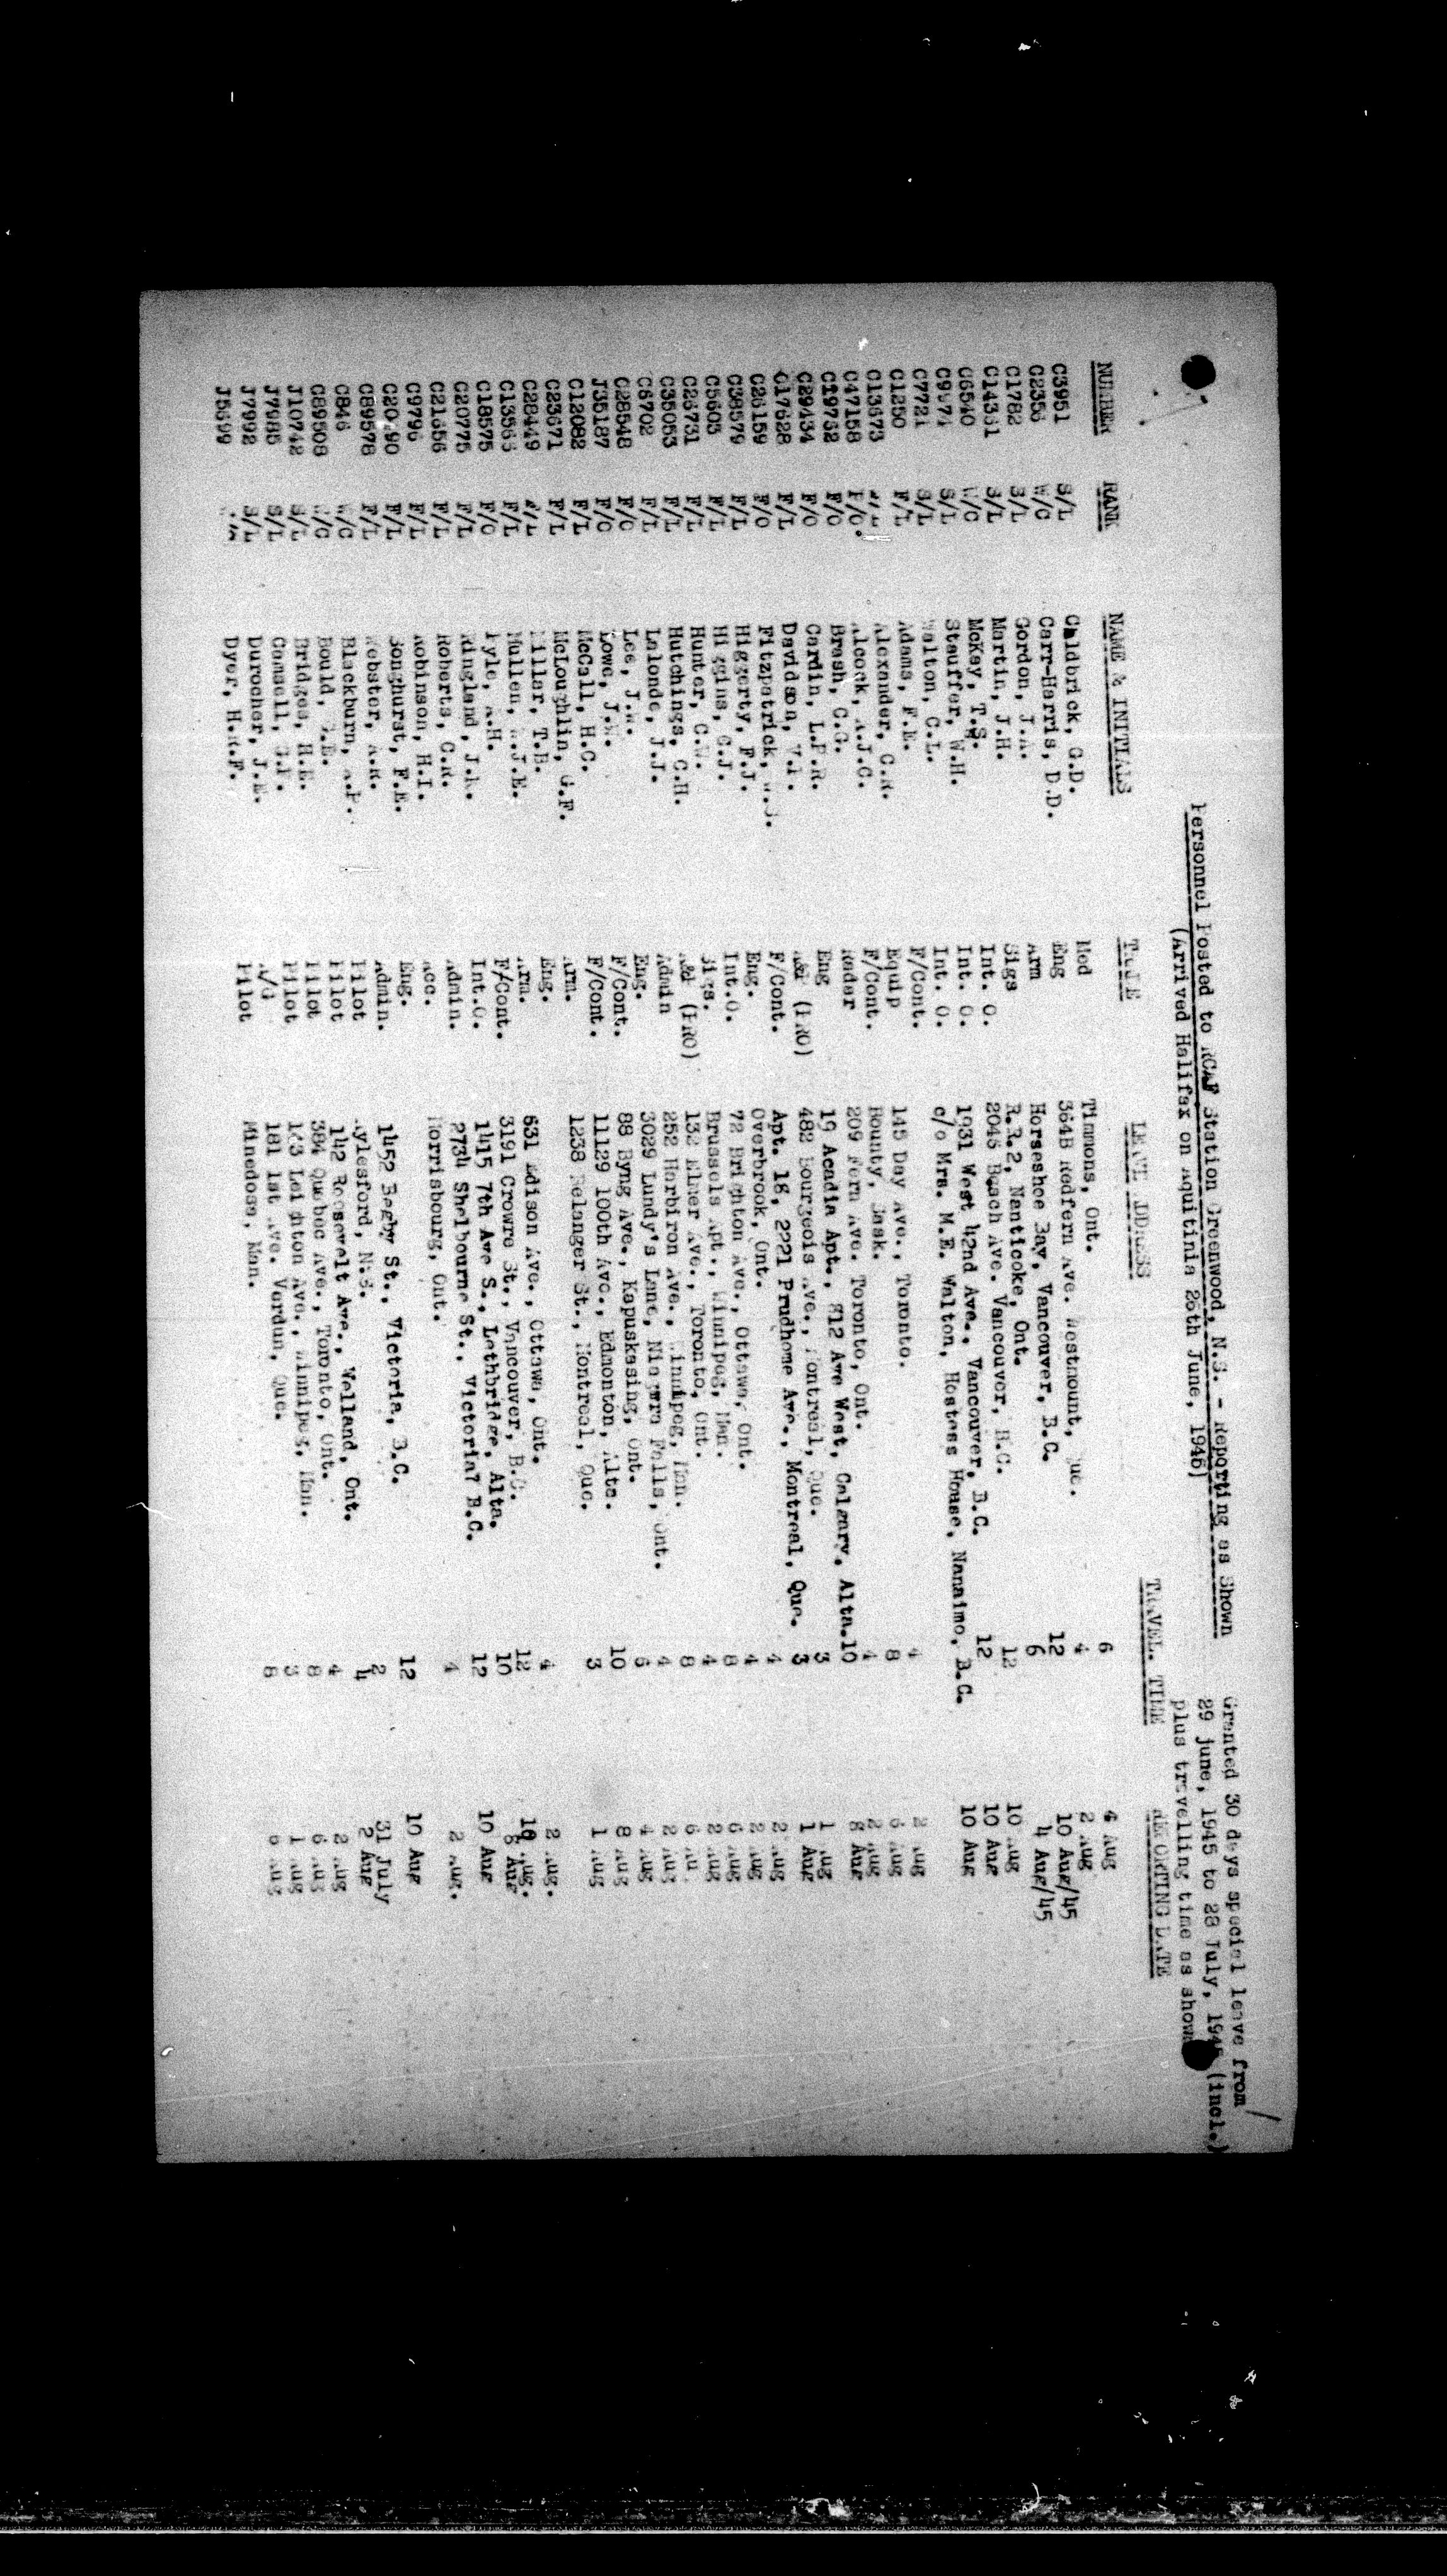 Granted 30 days special leave from
Personnel Posted to RCAF Station Greenwood, N.S. - Reporting as Shown 29 June, 1945 to 28 July, 1945 (incl.)
(Arrived Halifax on Aquitinia 26th June, 1945) plus travelling time as shown
NUMBER RANK NAME & INITIALS TRADE LEAVE ADDRESS TRAVEL. TIME REPORTING DATE
C3951 S/L Caldbrick, G.D. Med Timmons, Ont. 6 6 Aug
C2356 W/C Carr-Harris, D.D. Eng 364B Redfern Ave. Westmount, Que. 4 2 Aug
C1782 S/L Gordon, J.A. Arm Horseshoe Bay, Vancouver, B.C. 12 10 Aug/45
C14361 S/L Martin, J.H. Sigs R.R.2, Nanticoke, Ont. 6 4 Aug/45
C6540 W/C McKay, T.S. Int. O. 2045 Beach Ave. Vancouver, B.C. 12 10 Aug
C9974 S/L Stauffer, W.H. Int. O. 1931 West 42nd Ave., Vancouver, B.C. 12 10 Aug
C7721 S/L Walton, C.L. Int. O. c/o Mrs. M.E. Walton, Hostess House, Nanaimo, B.C. 10 Aug
C1250 F/L Adams, F.E. F/Cont.
C13673 Alexander, C.R. Equip 145 Day Ave., Toronto. 4 2 Aug
C47158 F/O. Alcock, A.J.C. F/Cont. Bounty, Sask. 8 6 Aug
C19762 F/O Brash, C.G. Radar 209 Fern Ave. Toronto, Ont. 4 2 Aug
C29434 F/O Cardin, L.P.R. Eng 19 Acadia Apt., 812 Ave West, Calgary, Alta. 10 8 Aug
C17628 F/L Davidson, V.I. A&P (PRO) 482 Bourgeois Ave., Montreal, Que. 3 1 Aug
C26159 F/O Fitzpatrick, W.J. F/Cont. Apt. 18, 2221 Prudhome Ave., Montreal, Que. 3 1 Aug
C38579 F/L Higgerty, F.J. Eng. Overbrook, Ont. 4 2 Aug
C5603 F/L Higgins, C.J. Int.O. 72 Brighton Ave., Ottawa, Ont. 4 2 Aug
C26731 F/L Hunter, C.W. Sigs. Brussels Apt., Winnipeg, Man. 8 6 Aug
C35053 F/L Hutchings, C.H. A&P (PRO) 132 Elmer Ave., Toronto, Ont. 4 2 Aug
C6702 F/L Lalonde, J.J. Admin 252 Harbiron Ave., Winnipeg, Man. 8 6 Au
C28548 F/O Lee, J.W. Eng. 3029 Lundy's Lane, Niagara Falls, Ont. 4 2 Aug
J35187 F/O Lowe, J.W. F/Cont. 88 Byng Ave., Kapuskasing, Ont. 6 4 Aug
C12082 F/L McCall, H.C. F/Cont. 11129 100th Ave., Edmonton, Alta. 10 8 Aug
C23671 F/L McLoughlin, G.F. Arm. 1238 Belanger St., Montreal, Que. 3 1 Aug
C28449 F/L Millar, T.B. Eng.
C13566 F/L Mullen, W.J.E. Arm. 631 Edison Ave., Ottawa, Ont. 4 2 Aug.
C18575 F/O Pyle, A.H. F/Cont. 3191 Crowre St., Vancouver, B.C. 12 10 Aug.
C20775 F/L Ringland, J.R. Int.O. 1415 7th Ave S., Lethbridge, Alta. 10 8 Aug
C21656 F/L Roberts, C.R. Admin. 2734 Shelbourne St., Victoria? B.C. 12 10 Aug
C9796 F/L Robinson, H.I. Acc. Morrisbourg, Ont. 4 2 Aug.
F/L Songhurst, F.E. Eng.
C89578 F/L Webster, A.R. Admin. 1452 Begby St., Victoria, B.C. 12 10 Aug
C846 W/C Blackburn, A.P. Pilot Aylesford, N.S. 2 31 July
C89508 W/C Bould, Pilot 142 Roosevelt Ave., Welland, Ont. 4 2 Aug
J10742 S/L Bridges, H.E. Pilot 384 Quebec Ave., Toronto, Ont. 4 2 Aug
J7985 S/L Camsell, Pilot Leighton Ave., Winnipeg, Man. 8 6 Aug
J7992 S/L Durocher, J.E. A/G 181 1st Ave. Verdun, Que. 3 1 Aug
J5699 Dyer, H.R.F. Pilot Minedosa, Man. 8 6 Aug